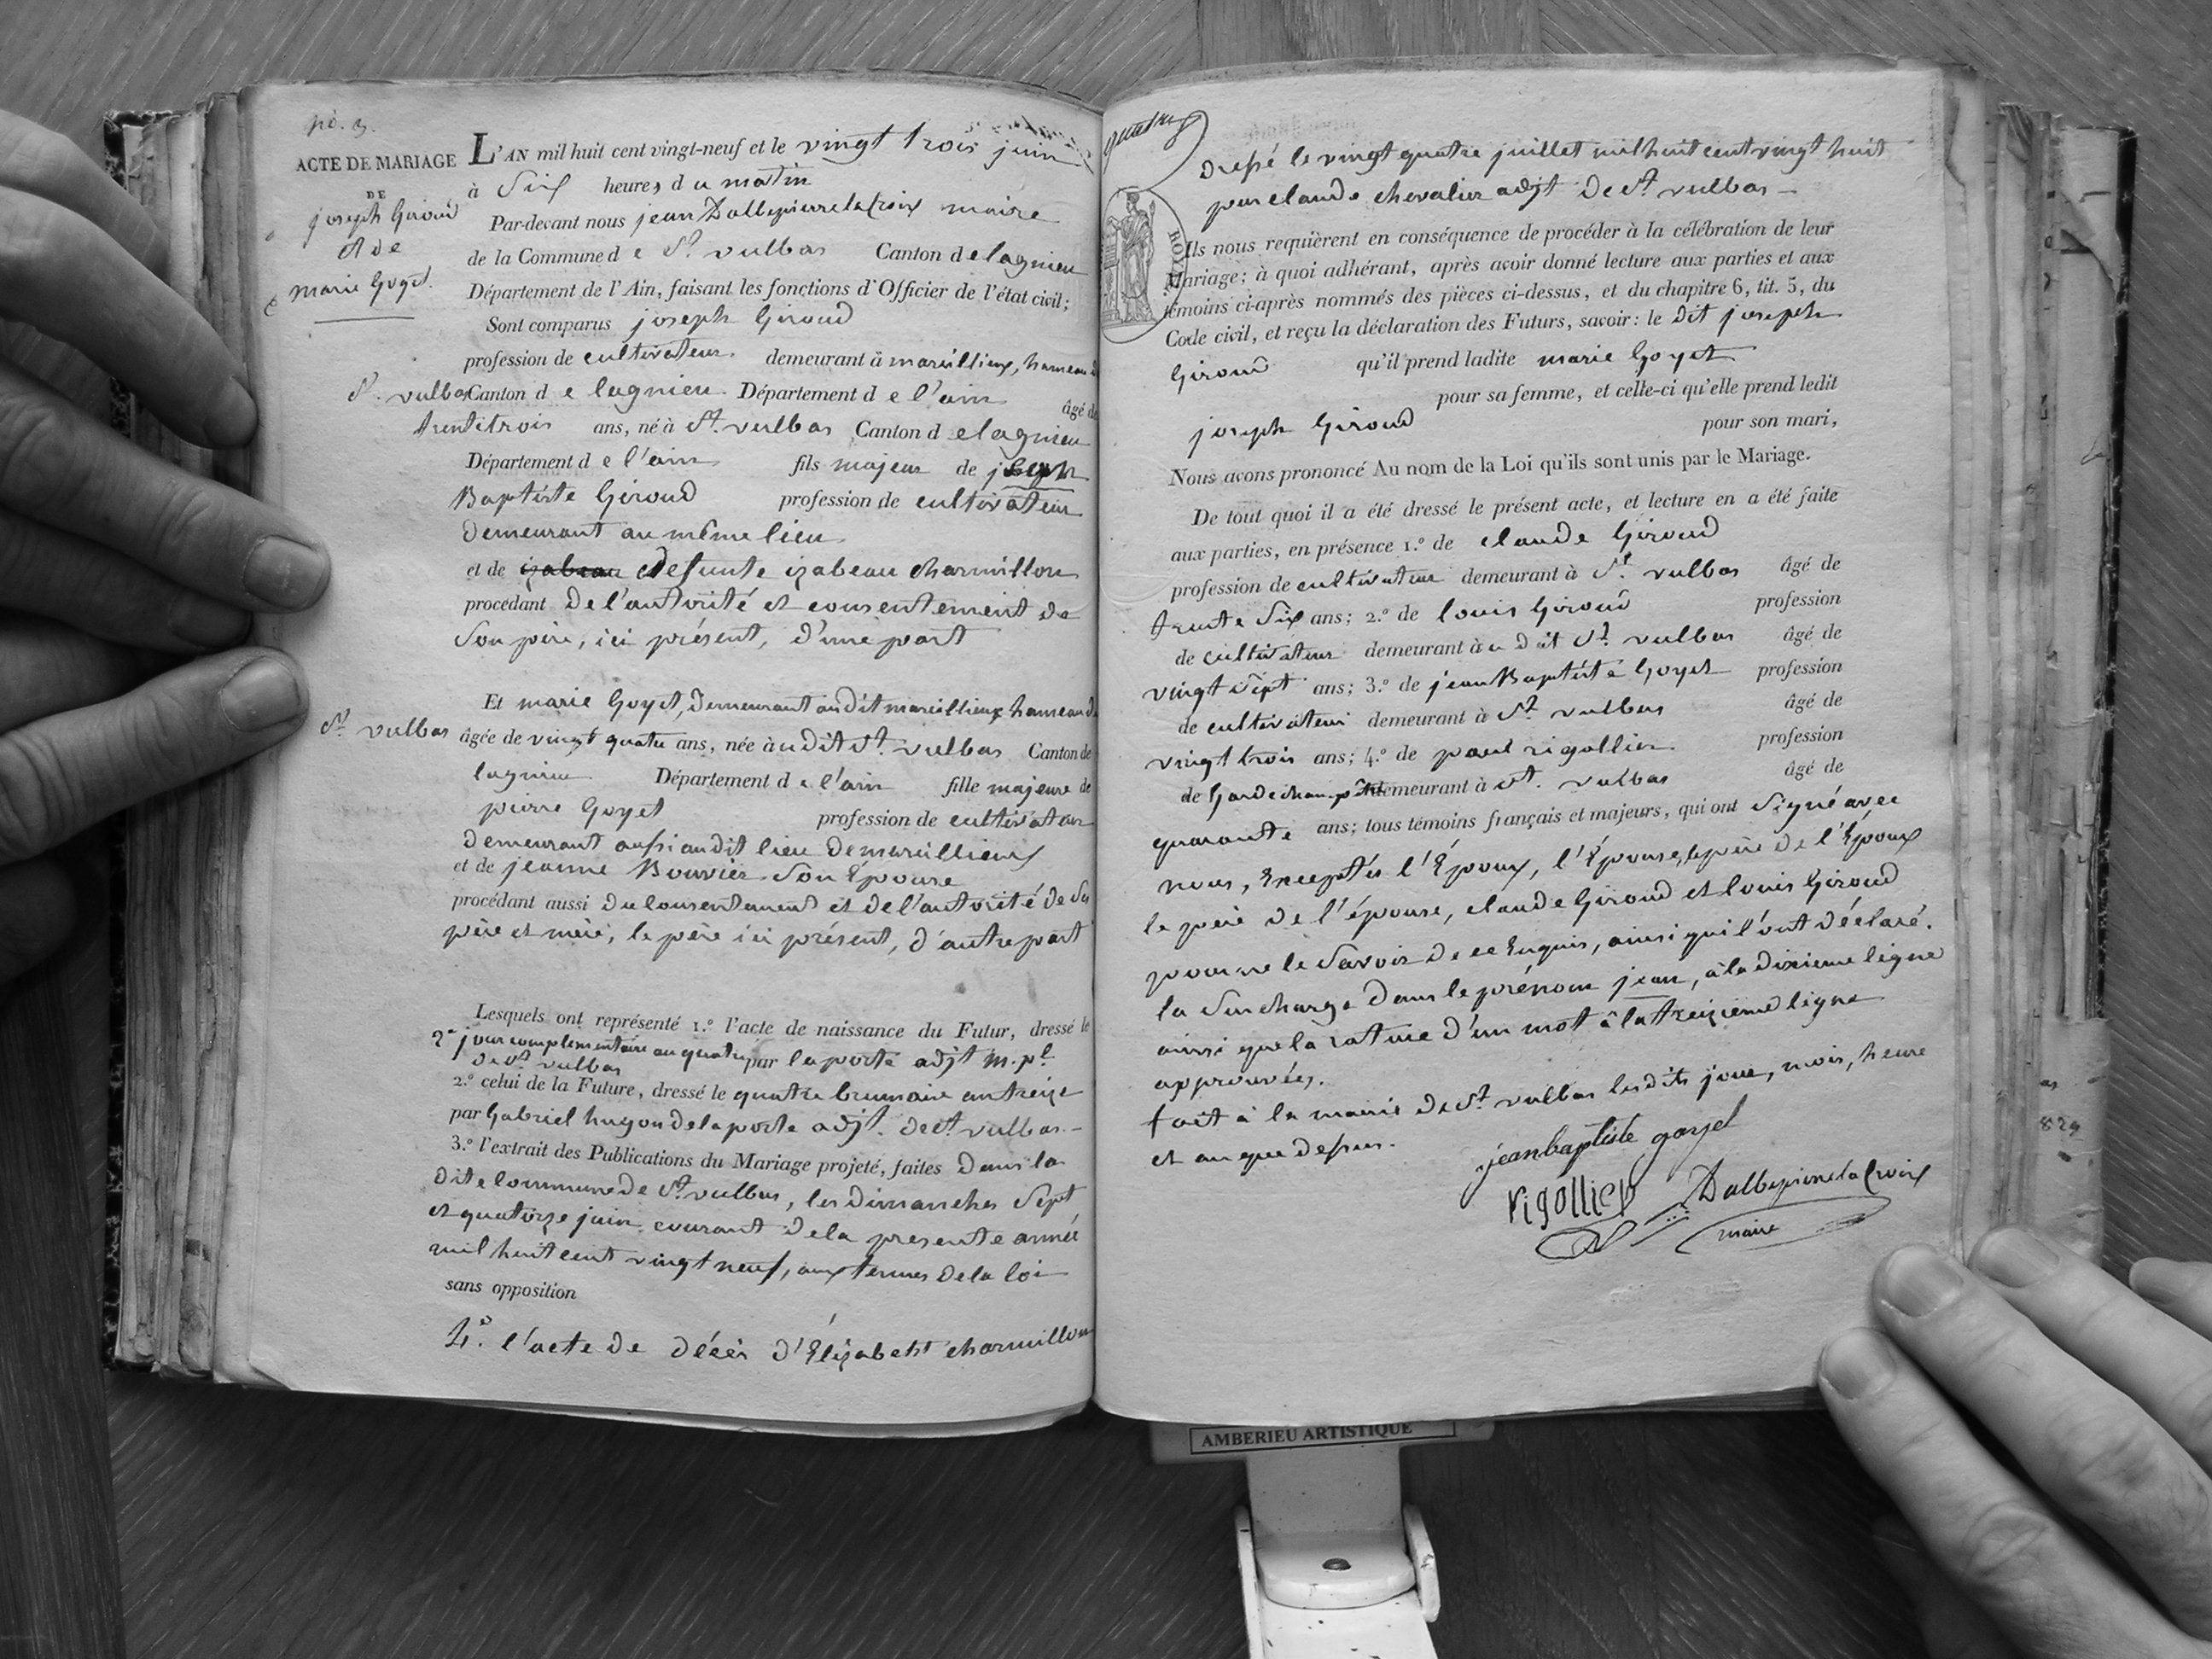 no. 3.
ACTE DE MARIAGE
DE
joseph Giroud
et de
marie Goyet.
L'AN mil huit cent vingt-neuf et le vingt trois juin
à Six heures du matin
Par-devant nous jean Dallepierrelacroix maire
de la Commune de St. vulbas Canton de lagnieu
Département de l'Ain, faisant les fonctions d'Officier de l'état civil;
Sont comparus joseph Giroud
profession de cultivateur demeurant à marcillieux, hameau de
St. vulbas Canton de lagnieu Département de l'ain âgé de
trentetrois ans, né à St. vulbas Canton de lagnieu
Département de l'ain fils majeur de
Baptiste Giroud profession de cultivateur
demeurant au même lieu
et de izabeau defunte izabeau charmillon
procédant de l'autorité et consentement de
Son père, ici présent, d'une part
Et marie Goyet, demeurant audit marcillieux hameau de
St. vulbas âgée de vingt quatre ans, née à udit St. vulbas Canton de
lagnieu Département de l'ain fille majeure de
pierre Goyet profession de cultivateur
demeurant aussi audit lieu de marcillieux
et de jeanne Bouvier Son Épouse
procédant aussi du Consentement et de l'autorité de Ses
père et mère, le père ici présent, d'autre part
Lesquels ont représenté 1.º l'acte de naissance du Futur, dressé le
2e jour complementaire an quatre par laporte adjt m.pl
de St. vulbas
2.º celui de la Future, dressé le quatre brumaire an treize
par Gabriel hugon delaporte adjt. de St. vulbas.-
3.º l'extrait des Publications du Mariage projeté, faites dans la
dite Commune de St. vulbas, les dimanches Sept
et quatorze juin courant de la presente année
mil huit cent vingt neuf, aux termes de la loi
sans opposition
4.º l'acte de décès d'Élizabeth charmillon
dressé le vingt quatre juillet mil huit cent vingt huit
par claude chevalier adjt de St. vulbas -
Ils nous requièrent en conséquence de procéder à la célébration de leur
Mariage; à quoi adhérant, après avoir donné lecture aux parties et aux
témoins ci-après nommés des pièces ci-dessus, et du chapitre 6, tit. 5, du
Code civil, et reçu la déclaration des Futurs, savoir: le dit joseph
Giroud qu'il prend ladite marie Goyet
pour sa femme, et celle-ci qu'elle prend ledit
joseph Giroud pour son mari,
Nous avons prononcé Au nom de la Loi qu'ils sont unis par le Mariage.
De tout quoi il a été dressé le présent acte, et lecture en a été faite
aux parties, en présence 1.º de claude Giroud
profession de cultivateur demeurant à St. vulbas âgé de
trente Six ans; 2.º de louis Giroud profession
de cultivateur demeurant à u dit St. vulbas âgé de
vingt Sept ans; 3.º de jean Baptiste Goyet profession
de cultivateur demeurant à St. vulbas âgé de
vingt trois ans; 4.º de paul rigollier profession
de Garde champêtre demeurant à St. vulbas âgé de
quarante ans; tous témoins français et majeurs, qui ont Signé avec
nous, Exceptés l'Époux, l'Épouse, le père de l'Époux
le père de l'épouse, claude Giroud et louis Giroud
pour ne le Savoir de ce Enquis, ainsi qu'il l'ont déclaré.
la Surcharge dans le prénom jean, à la dixieme ligne
ainsi que la rature d'un mot à la treizieme ligne
approuvées.
fait à la mairie de St. vulbas lesdits jour, mois, heure
et an que dessus.
jeanbaptiste goyet
rigollier
Dallepierrelacroix
maire
829
AMBERIEU ARTISTIQUE